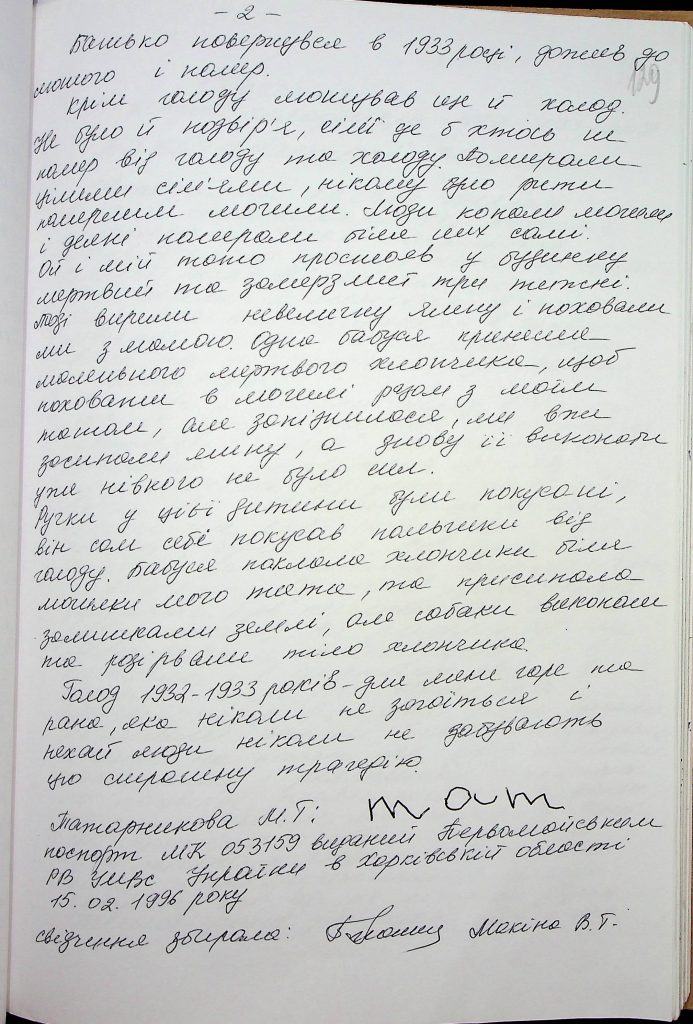 - 2 -
129
Батько повернувся в 1933 році, дожив до
лютого і помер.
Крім голоду мошував ще й холод.
Не було й подвір'я, сім'ї де б хтось не
помер від голоду та холоду. Помирали
цілими сім'ями, нікому було рити
помершим могили. Люди копали могили
і деякі помирали біля них самі.
От і мій тато пролежав у будинку
мертвий та замерзлий три тижні.
Тоді вирили невеличку ямину і поховали
ми з мамою. Одна бабуся принесла
маленького мертвого хлопчика, щоб
поховати в могилі разом з моїм
татом, але запізнилася, ми вже
засипали ямину, а знову її викопати
уже нівкого не було сил.
Ручки у цієї дитини були покусані,
він сам себе покусав пальчики від
голоду. Бабуся поклала хлопчика біля
могилки мого тата, та присипала
залишками землі, але собаки викопали
та розірвали тіло хлопчика.
Голод 1932-1933 років - для мене горе та
рана, яка ніколи не загоїться і
нехай люди ніколи не забувають
цю страшну трагедію.
Татарникова М.Т:
паспорт МК 053159 виданий Первомайським
РВ УМВС України в Харківській області
15.02.1996 року
свідчення збирала: Макіна В.Т.